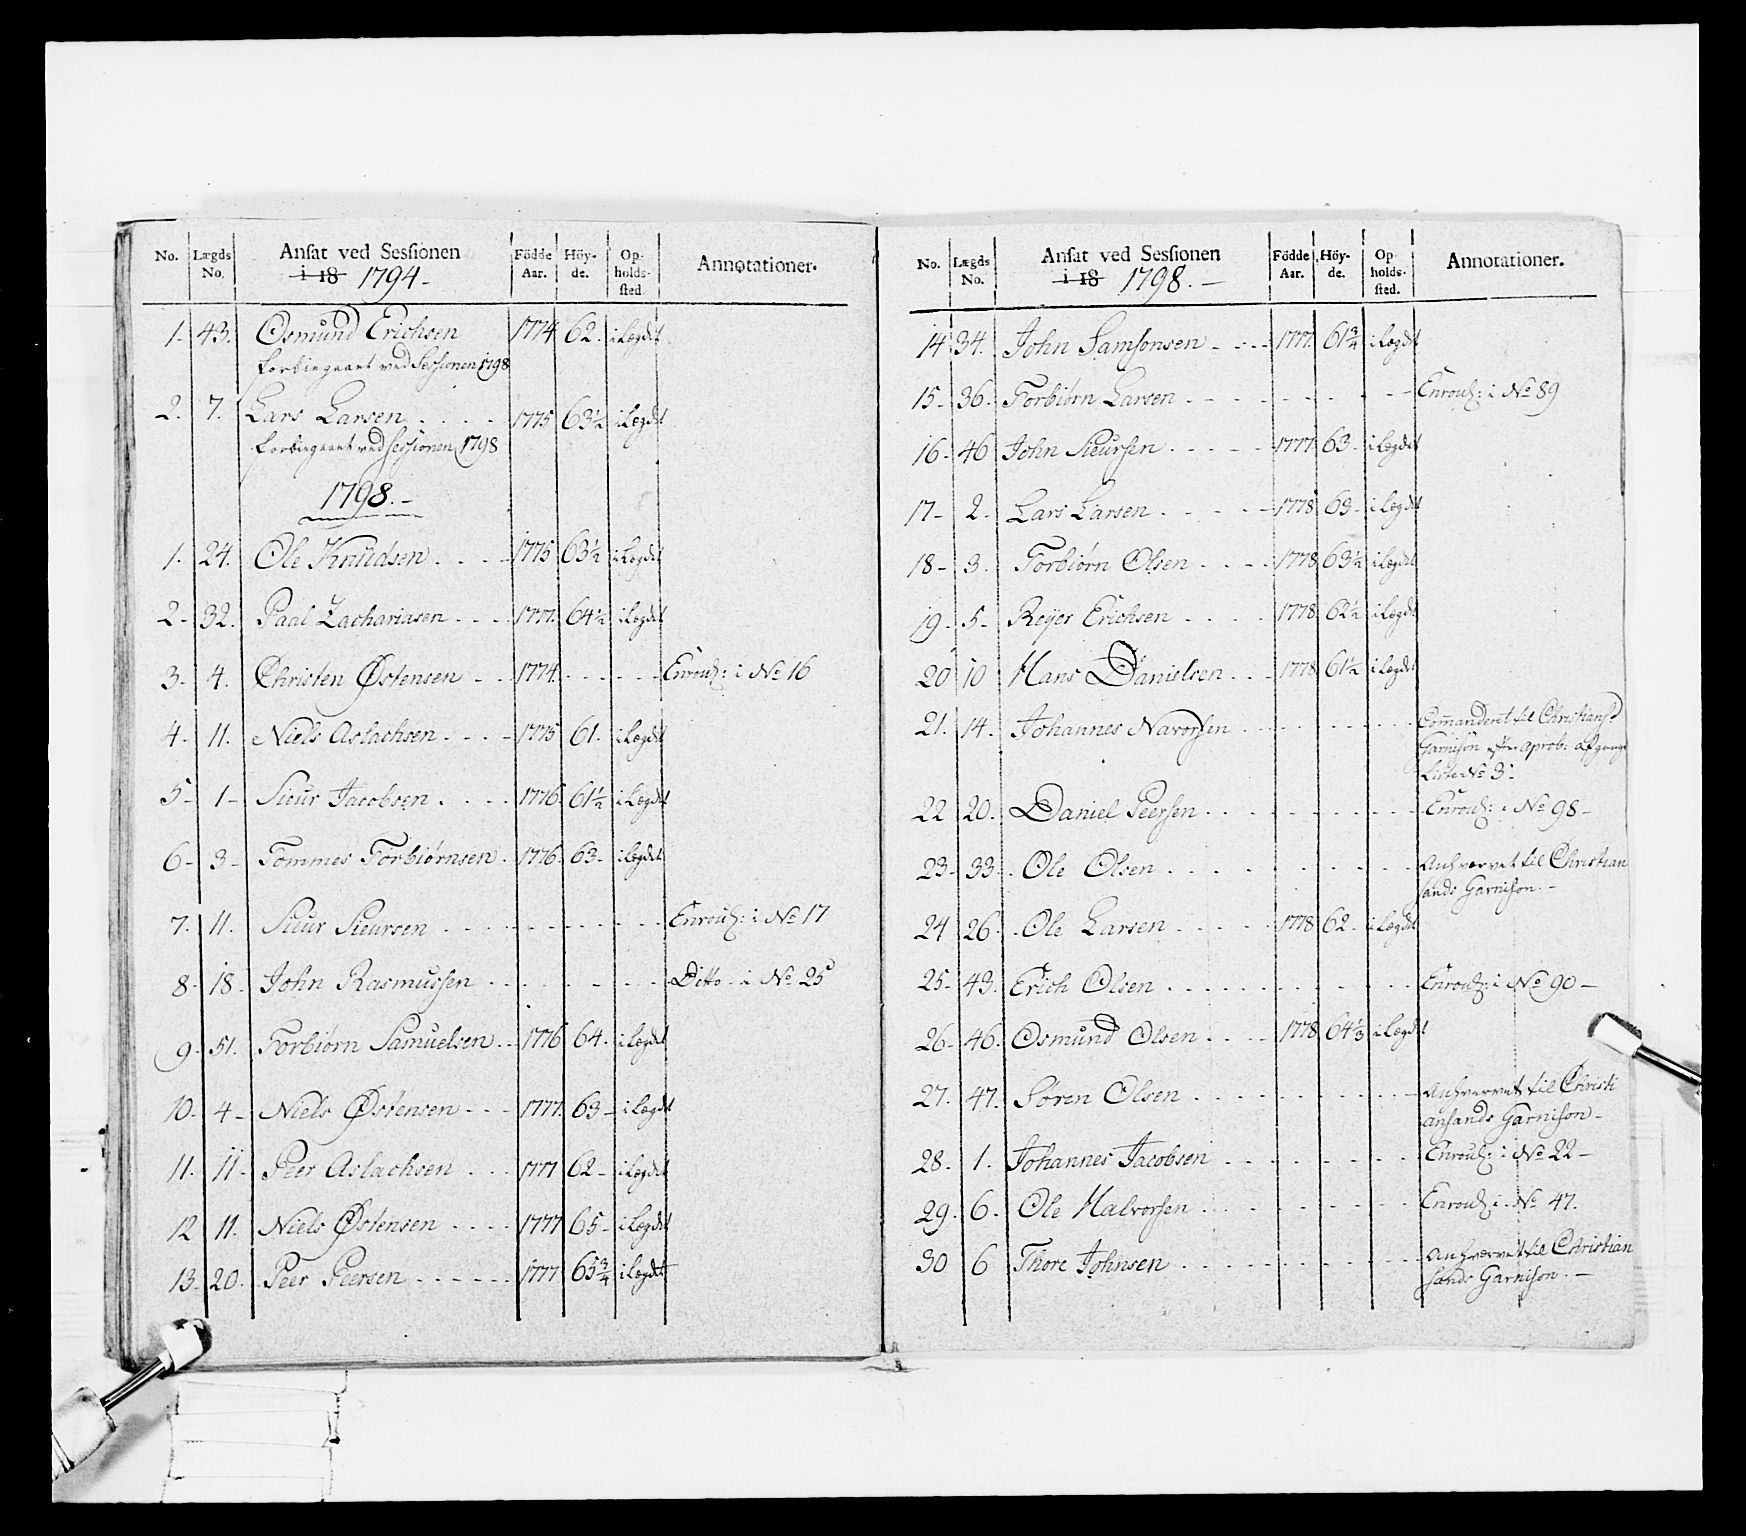 No. Lægds No. Ansat ved Sessionen i 18 1794- Födde Aar. Höy-de. Op-holds-sted. Annotationer.
1. 43. Osmund Erichsen 1774 62. i Lægdet
forbiegaaet ved Sessionen 1798
2. 7. Lars Larsen 1775 63½ i Lægdet
forbiegaaet ved Sessionen 1798
1798.-
1. 24. Ole Knudsen 1775 63½ i Lægdet
2- 32. Paal Zachariasen 1777. 64½ i Lægdet
3- 4. Christen Østensen 1774. Enroul: i No 16
4- 11. Niels Aslachsen 1775 61. i Lægdet
5- 1- Sieur Jacobsen 1776 61½ i Lægdet
6- 3- Tommes Torbiørnsen 1776. 63- i Lægdet
7. 11. Sieur Sieursen Enroul: i No 17
8. 18. John Rasmussen Ditto i No 25
9. 51. Torbiørn Samuelsen 1776 64. i Lægdet
10. 4- Niels Østensen 1777. 63- i Lægdet
11. 11- Peer Aslachsen 1777 62- i Lægdet
12 11. Niels Østensen 1777 65- i Lægdet
13. 20. Peer Peersen 1777 65¾ i Lægdet
No. Lægds No. Ansat ved Sessionen i 18 1798.- Födde Aar. Höy-de. Op-holds-sted. Annotationer.
14 34. John Samsonsen 1777. 61¾ i Lægdet
15- 36. Torbiørn Larsen Enroul: i No 89
16- 46 John Sieursen 1777 63- i Lægdet
17- 2- Lars Larsen 1778 63- i Lægdet
18- 3. Torbiørn Olsen 1778 63½ i Lægdet
19- 5- Reyer Erichsen 1778 62½ i Lægdet
20 10 Hans Danielsen 1778 61½ i Lægdet
21. 14. Johannes Navorsen Commanderet til Christians
Garnison efter aprob: afgangs
Liste No 3-
22 20. Daniel Peersen Enroul: i No 98-
23- 33. Ole Olsen Anhvervet til Christian
sands Garnison.-
24 26. Ole Larsen 1778 62. i Lægdet
25- 43. Erich Olsen Enroul: i No 90-
26- 46. Osmund Olsen 1778 64⅓ i Lægdet
27. 47. Søren Olsen Anhvervet til Christi
ansands Garnison-
28. 1. Johannes Jacobsen Enroul: i No 22-
29. 6. Ole Halvorsen Enroul: i No 47.
30 6 Thore Johnsen Anhvervet til Christian
sands Garnison.-